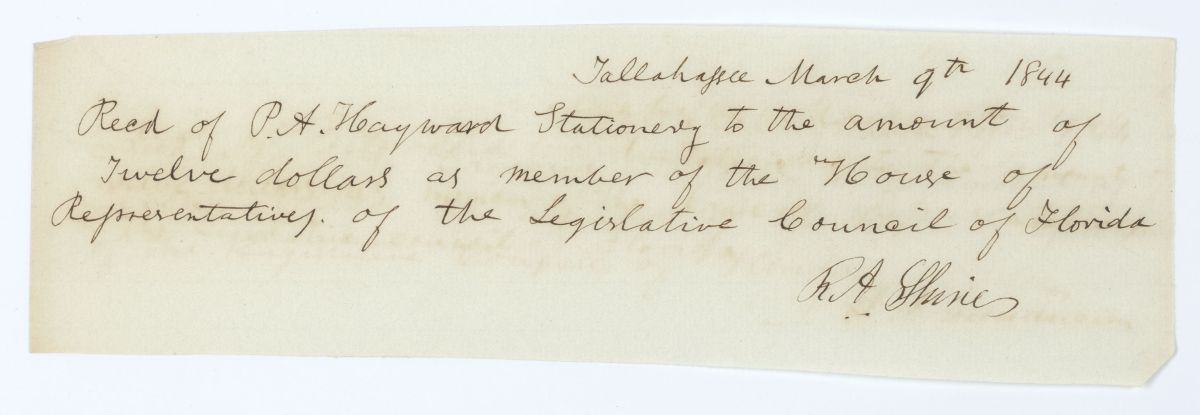 Tallahassee March 9th 1844
Recd of P. A. Hayward Stationery to the amount of
Twelve dollars as member of the House of
Representatives. of the Legislative Council of Florida
R. A. Shine